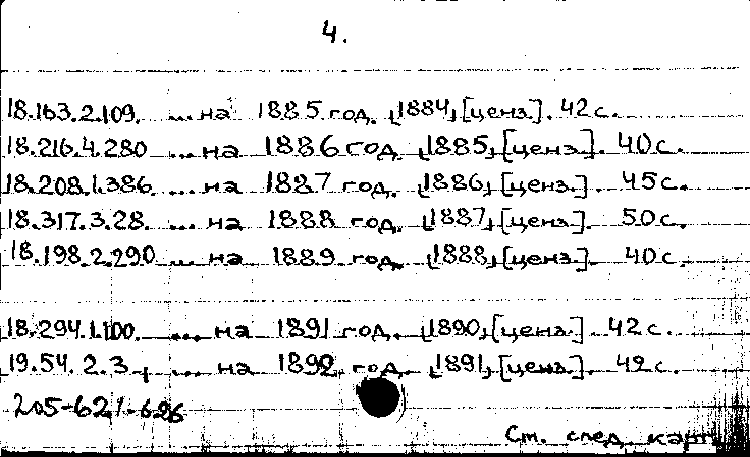 4.
18.163.2.109. ... на 1885 год. [1884, [ценз]. 42 с.
18.216.4.280 ... на 1886 год [1885, [ценз]. 40 с.
18.208.1.386 ... на 1887 год. [1886, [ценз.] 45 с.
18.317.3.28. ... на 1888 год. [1887, [ценз.]. 50 с.
18.198.2.290 ... на 1889 год. [1888, [ценз.]. 40 с.
18.294.1.100. ... на 1891 год. [1890, [ценз.] 42 с.
19.54.2.3 ... на 1892 год. [1891, [ценз.]. 42 с.
205-621-626
См. след. карт